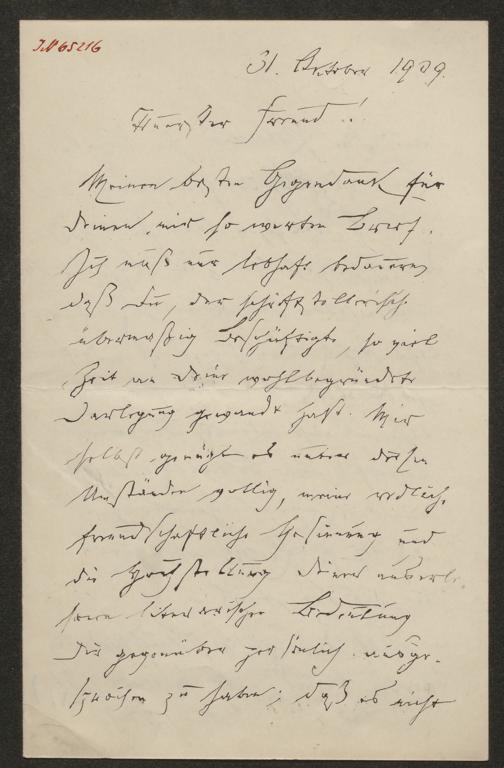 J.N 65216
31. Oktober 1909.
Theuerster Freund!
Meinen besten Gegendank für
deinen, mir so werten Brief.
Ich muß nur lebhaft bedauern,
daß du, der schriftstellerisch
übermäßig Beschäftigte, so viel
Zeit an deine wohlbegründete
Darlegung gewandt hast. Mir
selbst genügt es unter diesen
Umständen völlig, meine redliche
freundschaftliche Gesinnung und
die Hochstellung deiner
literarischen Bedeutung
dir gegenüber persönlich ausge-
sprochen zu haben; daß es nicht